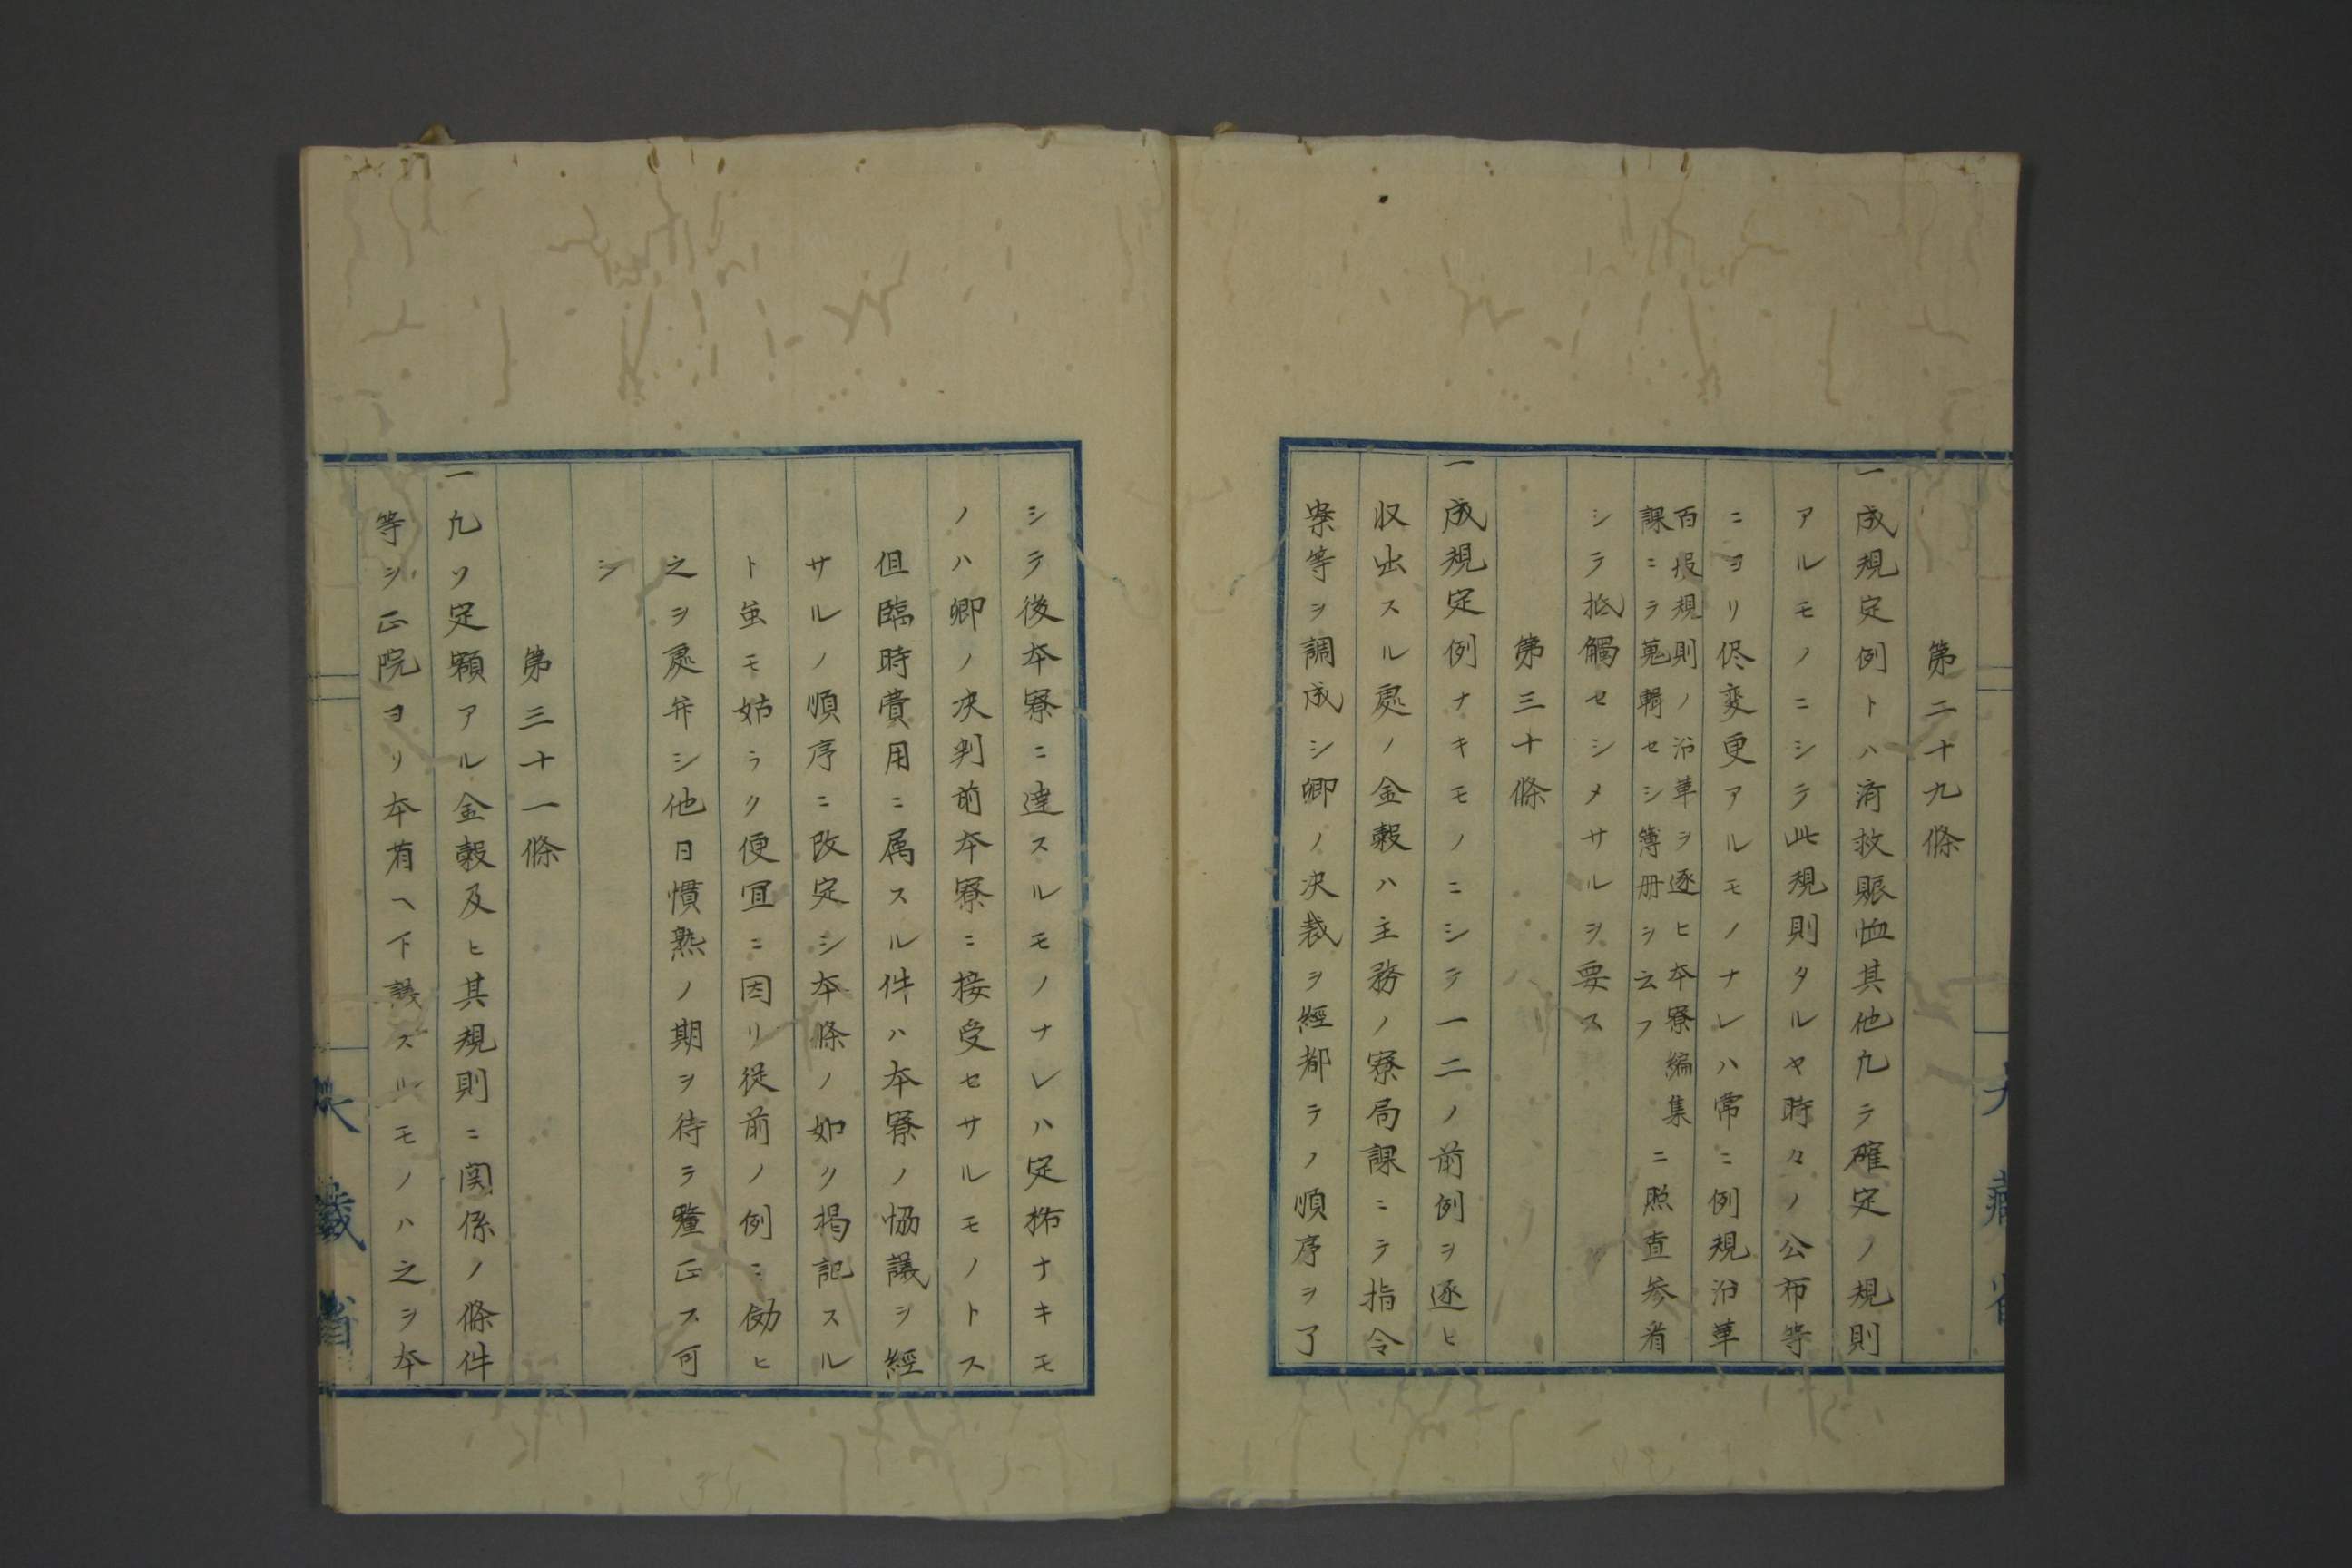 第二十九條
一成規定例トハ済救賑恤其他凡テ確定ノ規則
アルモノニシテ此規則タルヤ時々ノ公布等
ニヨリ侭変更アルモノナレハ常ニ例規沿革
百般規則ノ沿革ヲ逐ヒ本寮編集
課ニテ蒐輯セシ簿册ヲ云フ
ニ照査参看
シテ抵觸セシメサルヲ要ス
第三十條
一成規定例ナキモノニシテ一二ノ前例ヲ逐ヒ
収出スル處ノ金穀ハ主務ノ寮局課ニテ指令
案等ヲ調成シ卿ノ决裁ヲ經都テノ順序ヲ了
シテ後本寮ニ達スルモノナレハ定拆ナキモ
ノハ卿ノ决判前本寮ニ接受セサルモノトス
但臨時費用ニ属スル件ハ本寮ノ協議ヲ經
サルノ順序ニ改定シ本條ノ如ク掲記スル
ト虽モ姑ラク便宜ニ因リ従前ノ例ニ効ヒ
之ヲ處弁シ他日慣熟ノ期ヲ待テ釐正ス可
シ
第三十一條
一凡ソ定額アル金穀及ヒ其規則ニ関係ノ條件
等シ正院ヨリ本省ヘ下議スルモノハ之ヲ本
大藏省